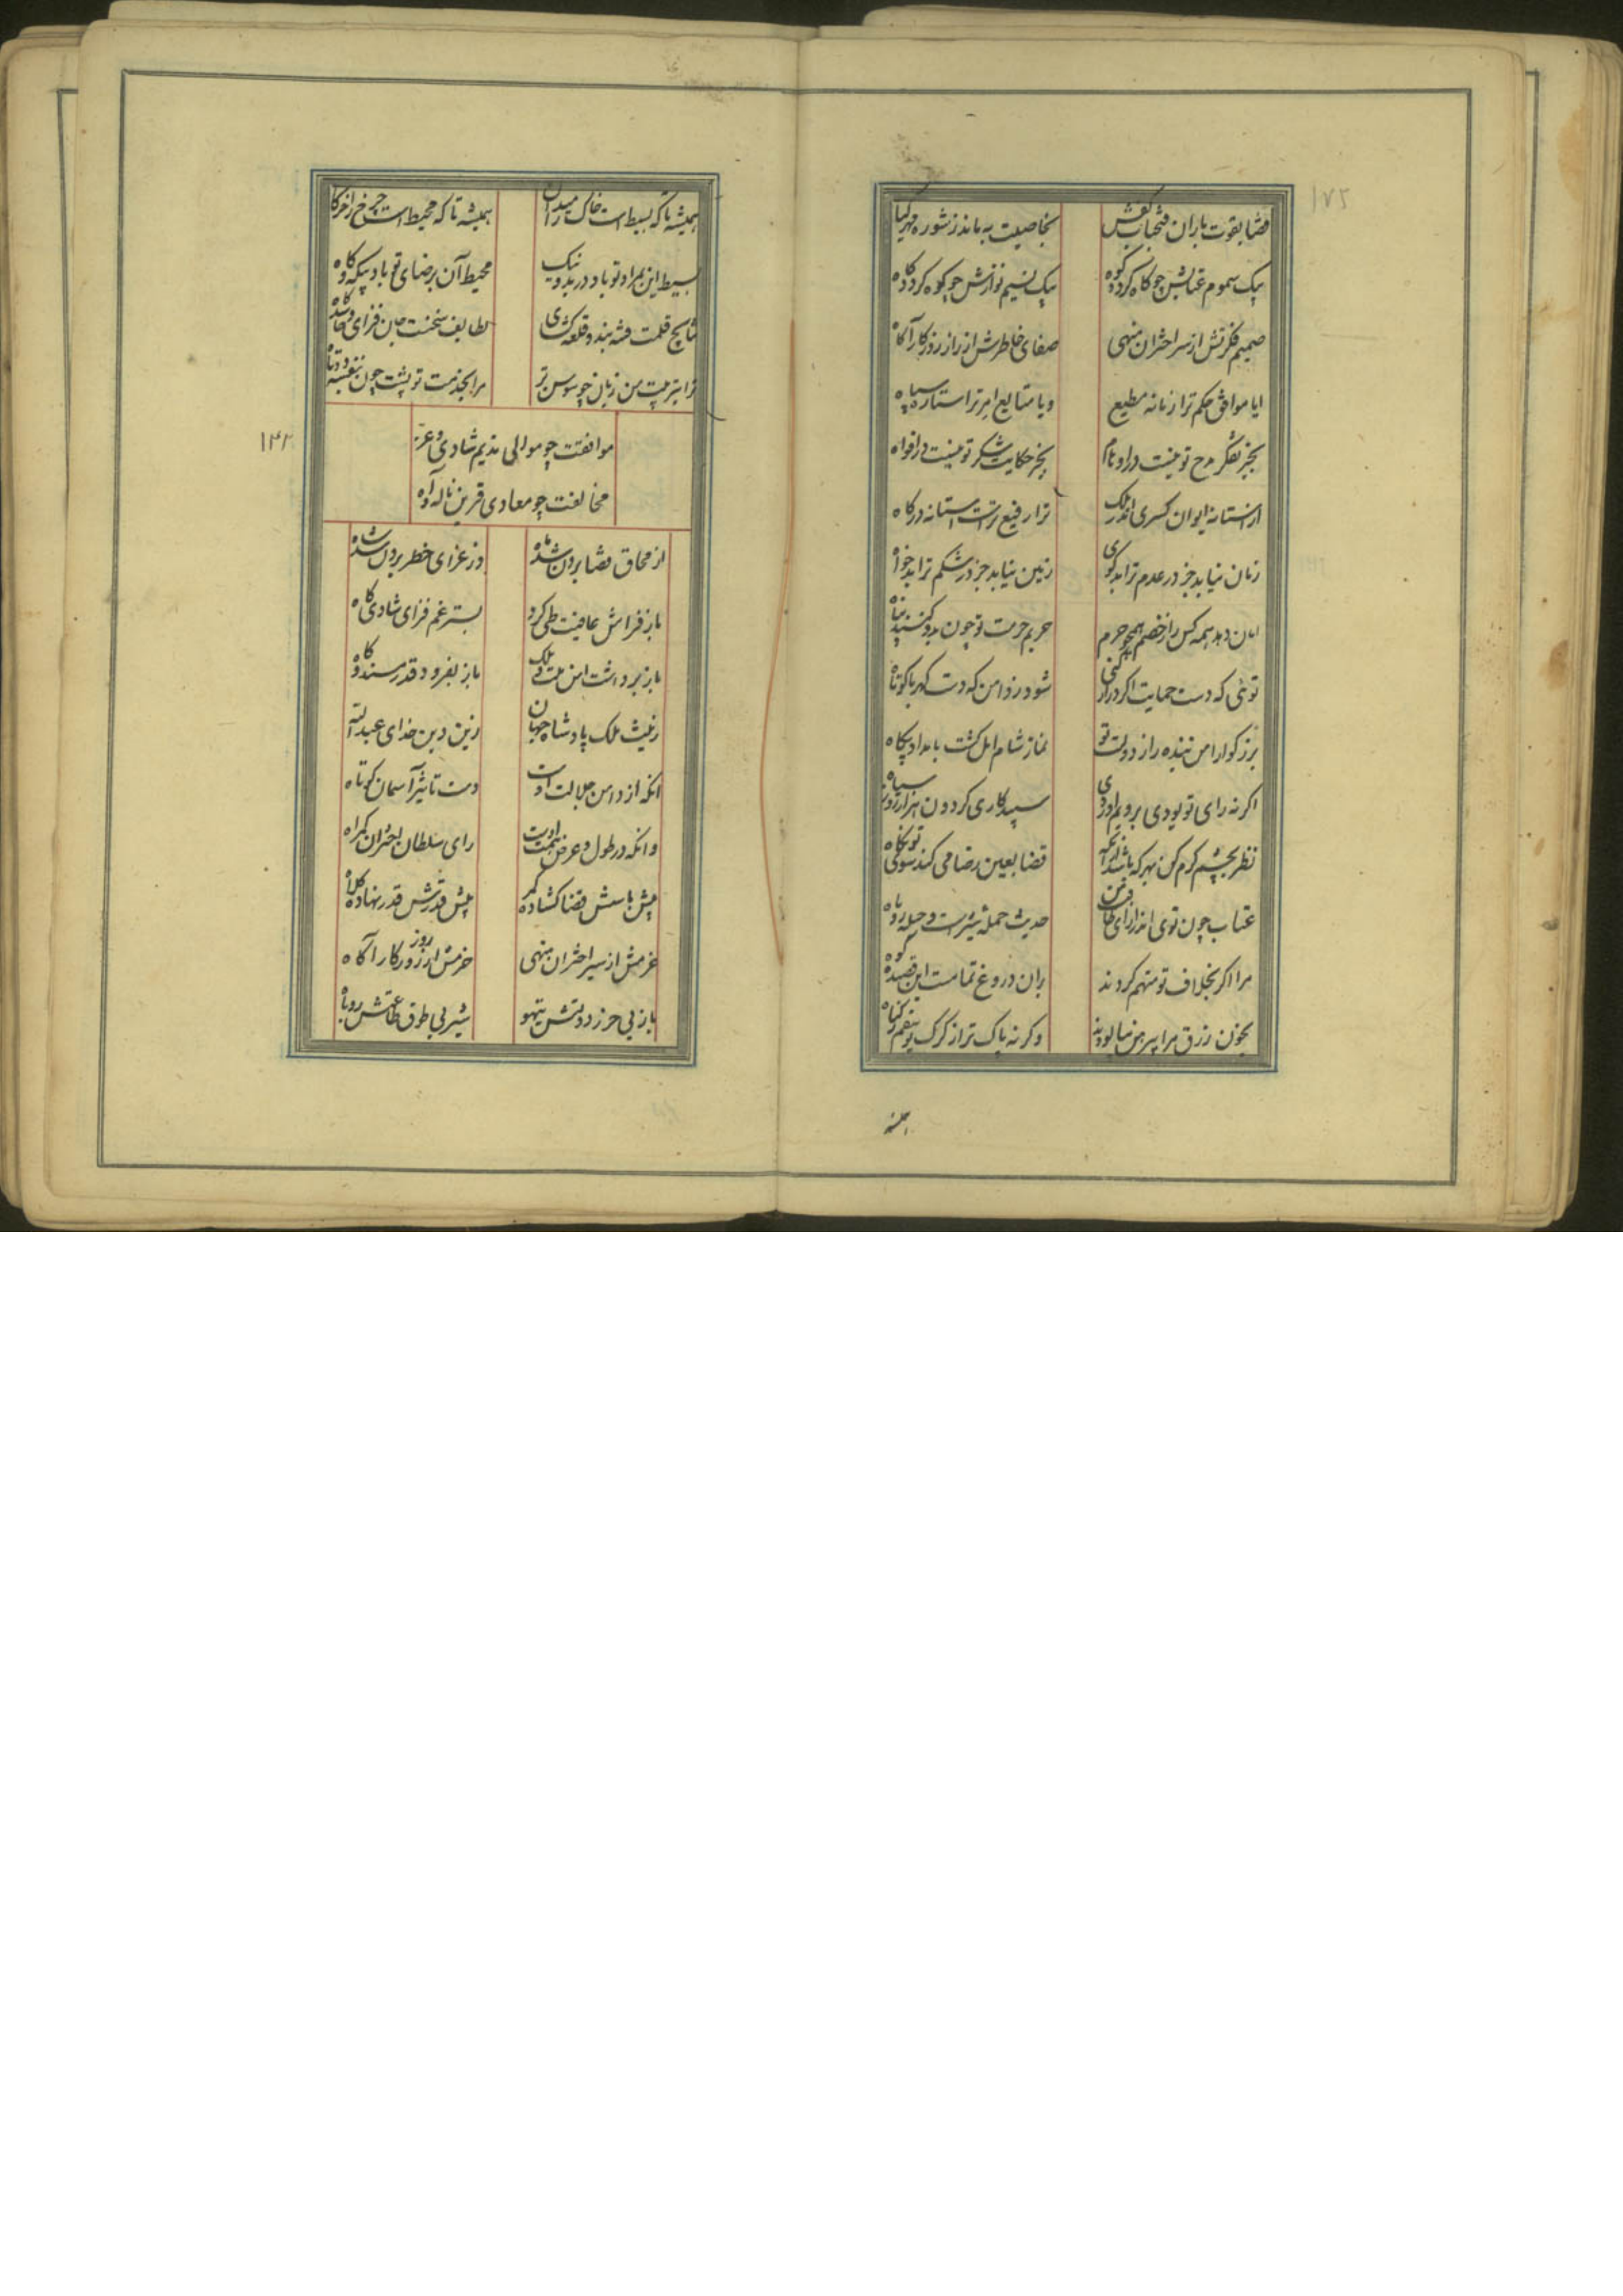 ۱۷۲
قضا بقوت باران فتحباب کفش
بخاصیت بدماند ز شوره مهر گیا
بیک سموم عتابش چو کاه گردد کوه
بیک نسیم نوازش چو کوه گردد کاه
ضمیر فکرتش از سر اختران منهی
صفای خاطرش از راز روزکار آکاه
ایا موافق حکم ترا زمانه مطیع
و یا متابع امر ترا ستاره سپاه
بجز تفکر مدح تو نیست در اوهام
بجز حکایت شکر تو نیست در افواه
از آستانه ایوان کسری اندر ملک
ترا رفیع ترست آستانه درکاه
زمان نیابد جز در عدم ترا بدکوی
زمین نیابد جز در شکم ترا بدخواه
امان دهد همه کس را ز خصم همچو حرم
حریم حرمت تو چون بدو کنند پناه
توئی که دست حمایت اکر دراز کنی
شود ز دامن که دست کهربا کوتاه
بزرکوارا من بنده را ز دولت تو
نماز شام امل کشت بامداد پکاه
اکر نه رای تو بودی برویم آوردی
سپیدکاری کردون هزار روز سیاه
نظر بچشم کرم کن بهر که باشد از آنکه
قضا بعین رضا می کند بسوی تو نکاه
عتاب چون توی اندر ازای طاقت من
حدیث حمله شیرست و حیله روباه
مرا اکر بخلاف تو متهم کردند
بران دروغ تمامست این قصیده کواه
بخون رزق مرا پیرهن نیالودند
وکرنه پاک تر از کرک یوسفم ز کناه
همیشه
همیشه تا که بسیط است خاک را میدان
همیشه تا که محیط است چرخ را خرکاه
بسیط این بمراد تو باد در بد و نیک
محیط آن برضای تو باد بیکه و کاه
نتایج قلمت فتنه بند و قلعه کشای
لطایف سخنت جان فزای و حاسدکاه
ترا بتربیت من زبان چو سوسن تر
مرا بخدمت تو پشت چون بنفشه دوتاه
۱۴۲
موافقت چو موالی ندیم شادی و عز
مخالفت چو معادی قرین ناله و آه
از محاق قضا برون شد ماه
وز عزای خطر برون شد شاه
باز فراش عافیت طی کرد
بستر غم فزای شادی کاه
باز برداشت امن ملت و ملک
باز بفزود قدر مسند و کاه
زینت ملک پادشاه جهان
زین دین خدای عبدالله
انکه از دامن جلالت اوست
دست تاثیر آسمان کوتاه
وانکه در طول و عرض همت اوست
رای سلطان اختران کمراه
پیش باسش قضا کشاده کمر
پیش قدرش قدر نهاده کلاه
عزمش از سیر اختران منهی
حزمش از روز روزکار آکاه
باز بی حرز دولتش تیهو
شیر بی طوق طاعتش روباه